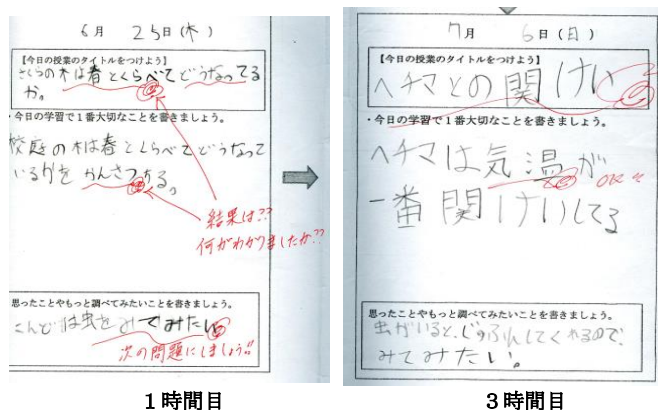 6月 25日(木)
【今日の授業のタイトルをつけよう】
さくらの木は春とくらべてどうなってる
か。
・今日の学習で1番大切なことを書きましょう。
校庭の木は春とくらべてどうなって
いるかを かんさつする。
結果は??
何がわかりましたか??
思ったことやもっと調べてみたいことを書きましょう。
こんどは虫をみてみたい。
次の問題にしましょう!!
1時間目
7月 6日(日)
【今日の授業のタイトルをつけよう】
ヘチマとの関けい
・今日の学習で1番大切なことを書きましょう。
ヘチマは気温が
OK
一番関けいしてる
思ったことやもっと調べてみたいことを書きましょう。
虫がいると、じゅふんしてくれるので、
みてみたい。
3時間目